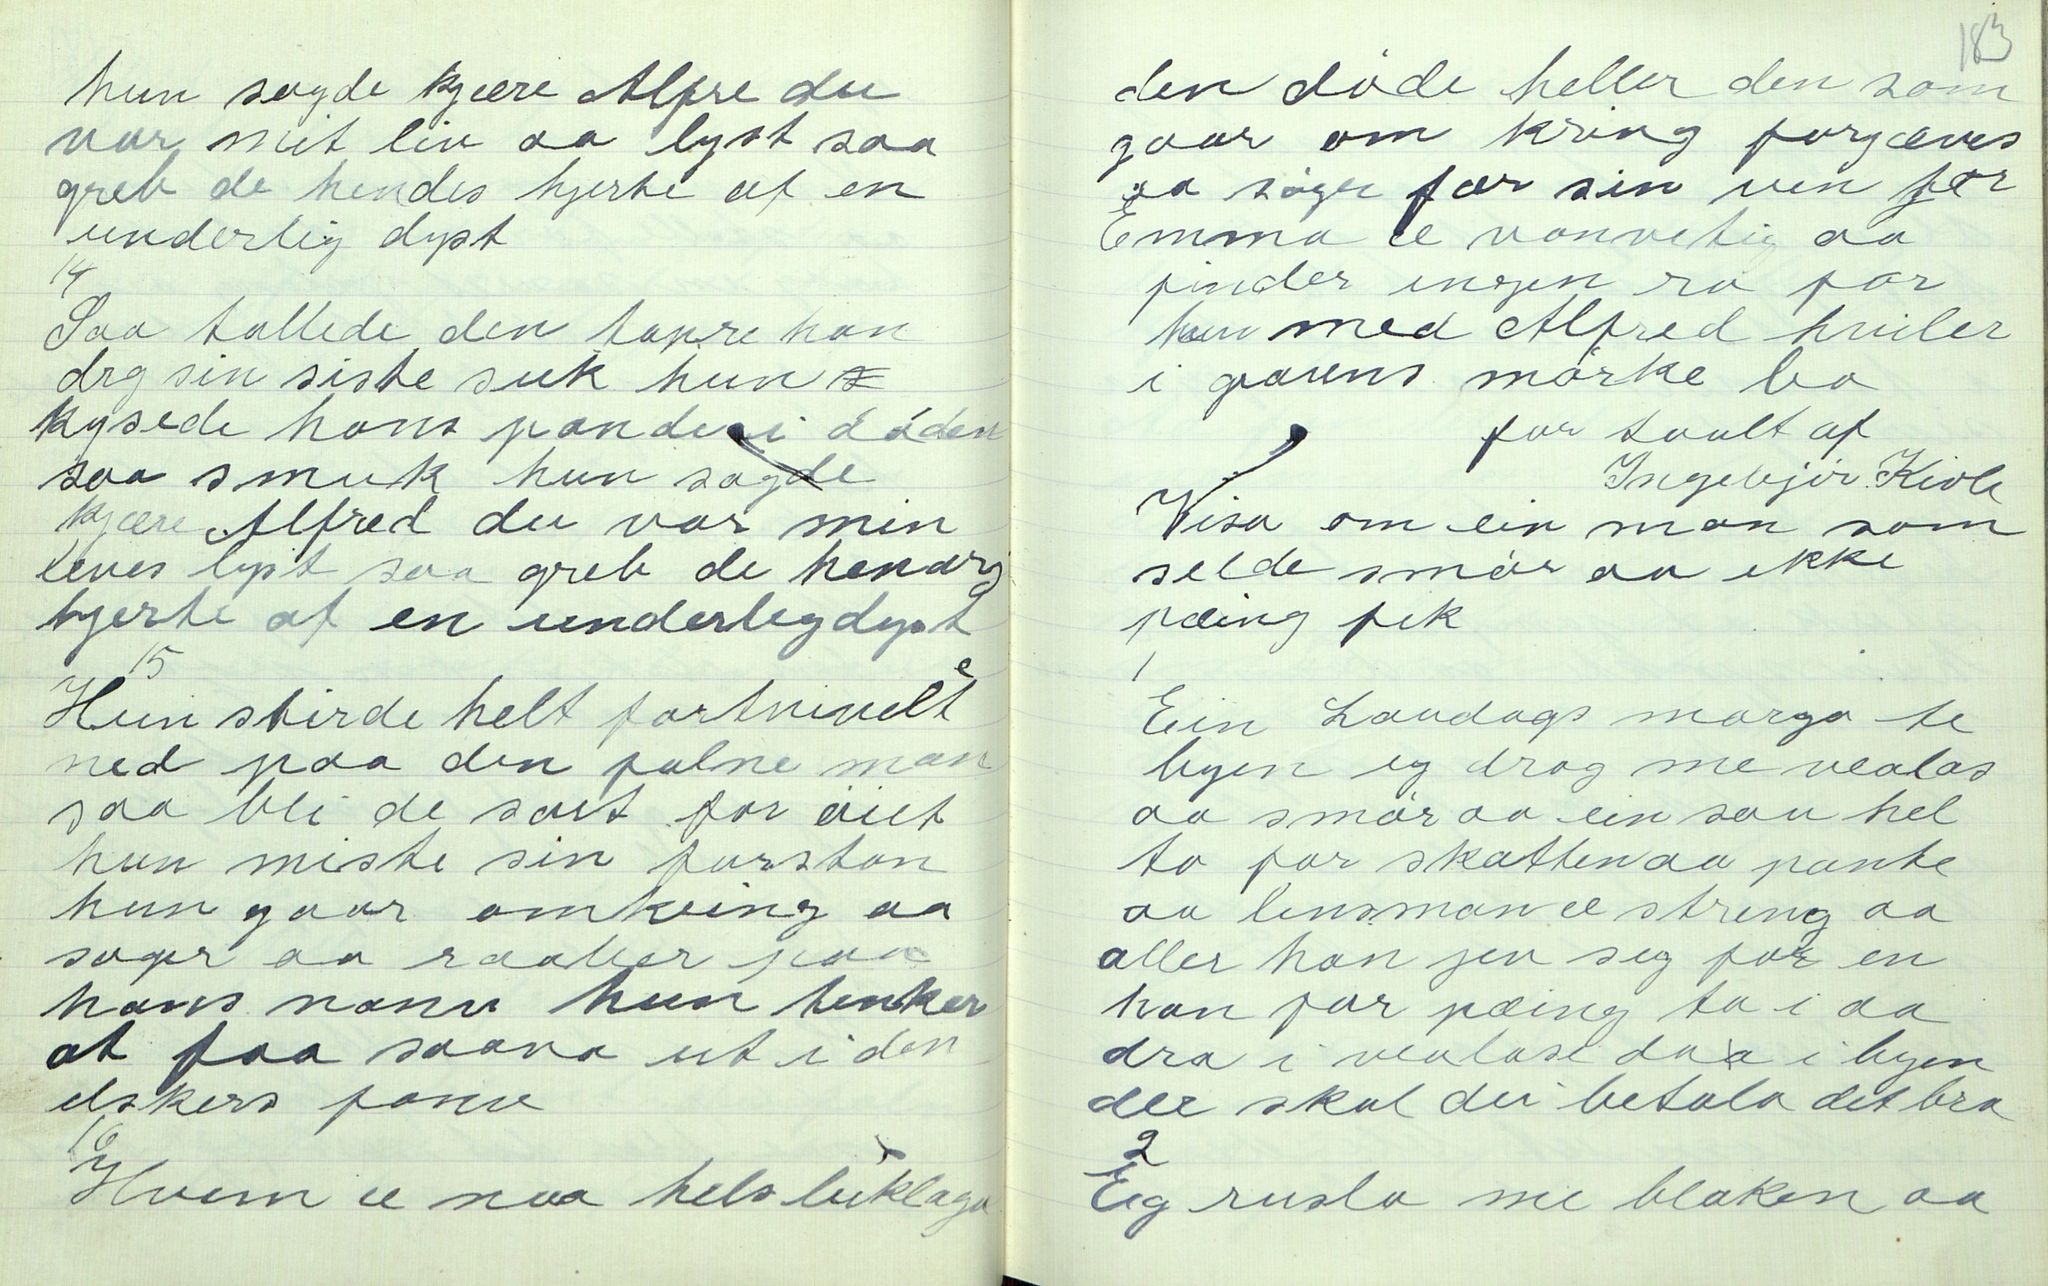 hun sagde kjære Alfre du
var mit liv aa lyst saa
greb de hendes hjerte af en
underlig dyst
14
Saa tallede den tapre han
drg sin siste suk hun
kysede hans pande i døden
saa smuk hun sagde
kjære Alfred du var min
leves lyst saa greb de
hjerte af en underlig dyst
15
Hun stirde helt fortvivelt
ned paa den falne man
saa bli de sort for øiet
hun miste sin forstan
hun gaar omkring aa
søger aa raaber paa
hans navn hun tenker
at faa svara ut i den
elskers favn
16
Hvem æ naa hels beklaga
183
den døde heller den som
gaar om kring forgæves
aa søger for sin ven for
Emma æ vanvetig aa
finder ingen ro for
hun med Alfred hviler
i gravens mørke bo
for taalt af
Ingebjør Kivle
Visa om ein man som
selde smør aa ikke
pæing fik
1
Ein Laudags morgo te
byen eg drog me vealas
aa smør aa ein sau hel
to for skatten aa pante
aa lensman æ streng aa
aller han jev seg for en
han far pæing ta i aa
dra i vealase daa i byen
der skal dei betala det bra
2
Eig rusla me blaken aa